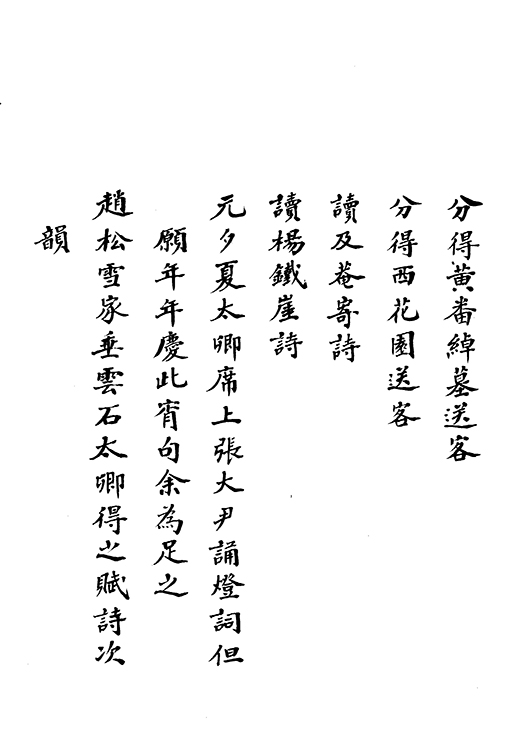 分得黃番綽墓送客
分得西花園送客
讀及菴寄詩
讀楊鐵崖詩
元夕夏太卿席上張大尹誦燈詞但
願年年慶此宵句余為足之
趙松雪家垂雲石太卿得之賦詩次
韻